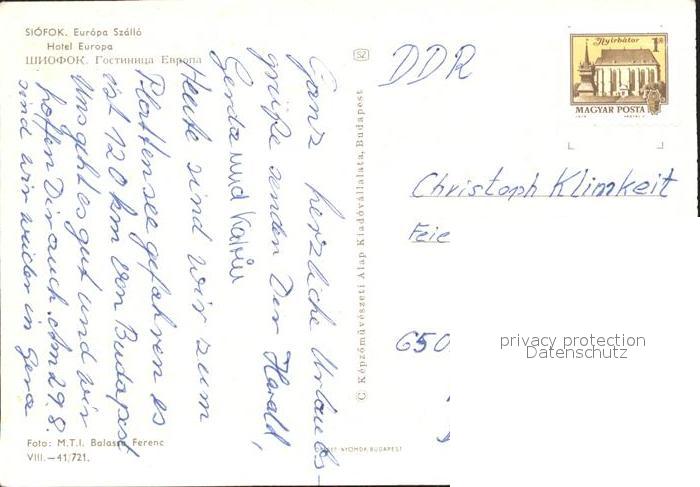 SIÓFOK. Európa Szálló
Hotel Europa
ШИОФОК. Гостиница Европа
Ganz herzliche Urlaubs-
grüße senden Dir Harald,
Gerda und Katrin
Heute sind wir zum
Plattensee gefahren es
ist 120 km von Budapest
Uns geht es gut und wir
hoffen Dir auch. Am 29.8.
sind wir wieder in Gera
Foto: M.T.I. Balassa Ferenc
VIII.—41/721.
SZ
C. Képzőművészeti Alap Kiadóvállalata, Budapest
-NYOMDA, BUDAPEST
Nyírbátor
1
MAGYAR POSTA
DDR
Christoph Klimkeit
Feie
650
privacy protection
Datenschutz